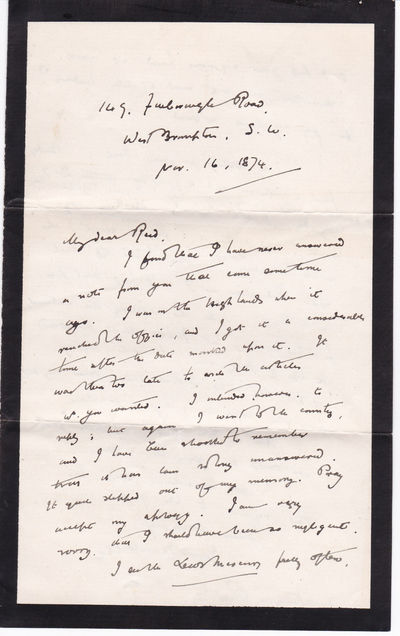 149. Finborough Road.
West Brompton, S. W.
Nov. 16, 1874.
My dear Reid.
I find that I have never answered
a note from you that came some time
ago. I was in the Highlands when it
reached the office, and I got it a considerable
time after the date marked upon it. It
was then too late to write the articles
wh. you wanted. I intended, however, to
reply; but again I went to the country,
and I have been shocked to remember
that it has lain so long unanswered.
It quite slipped out of my memory. Pray
accept my apology. I am very
sorry that I should have been so negligent.
I see the Leeds Mercury pretty often.